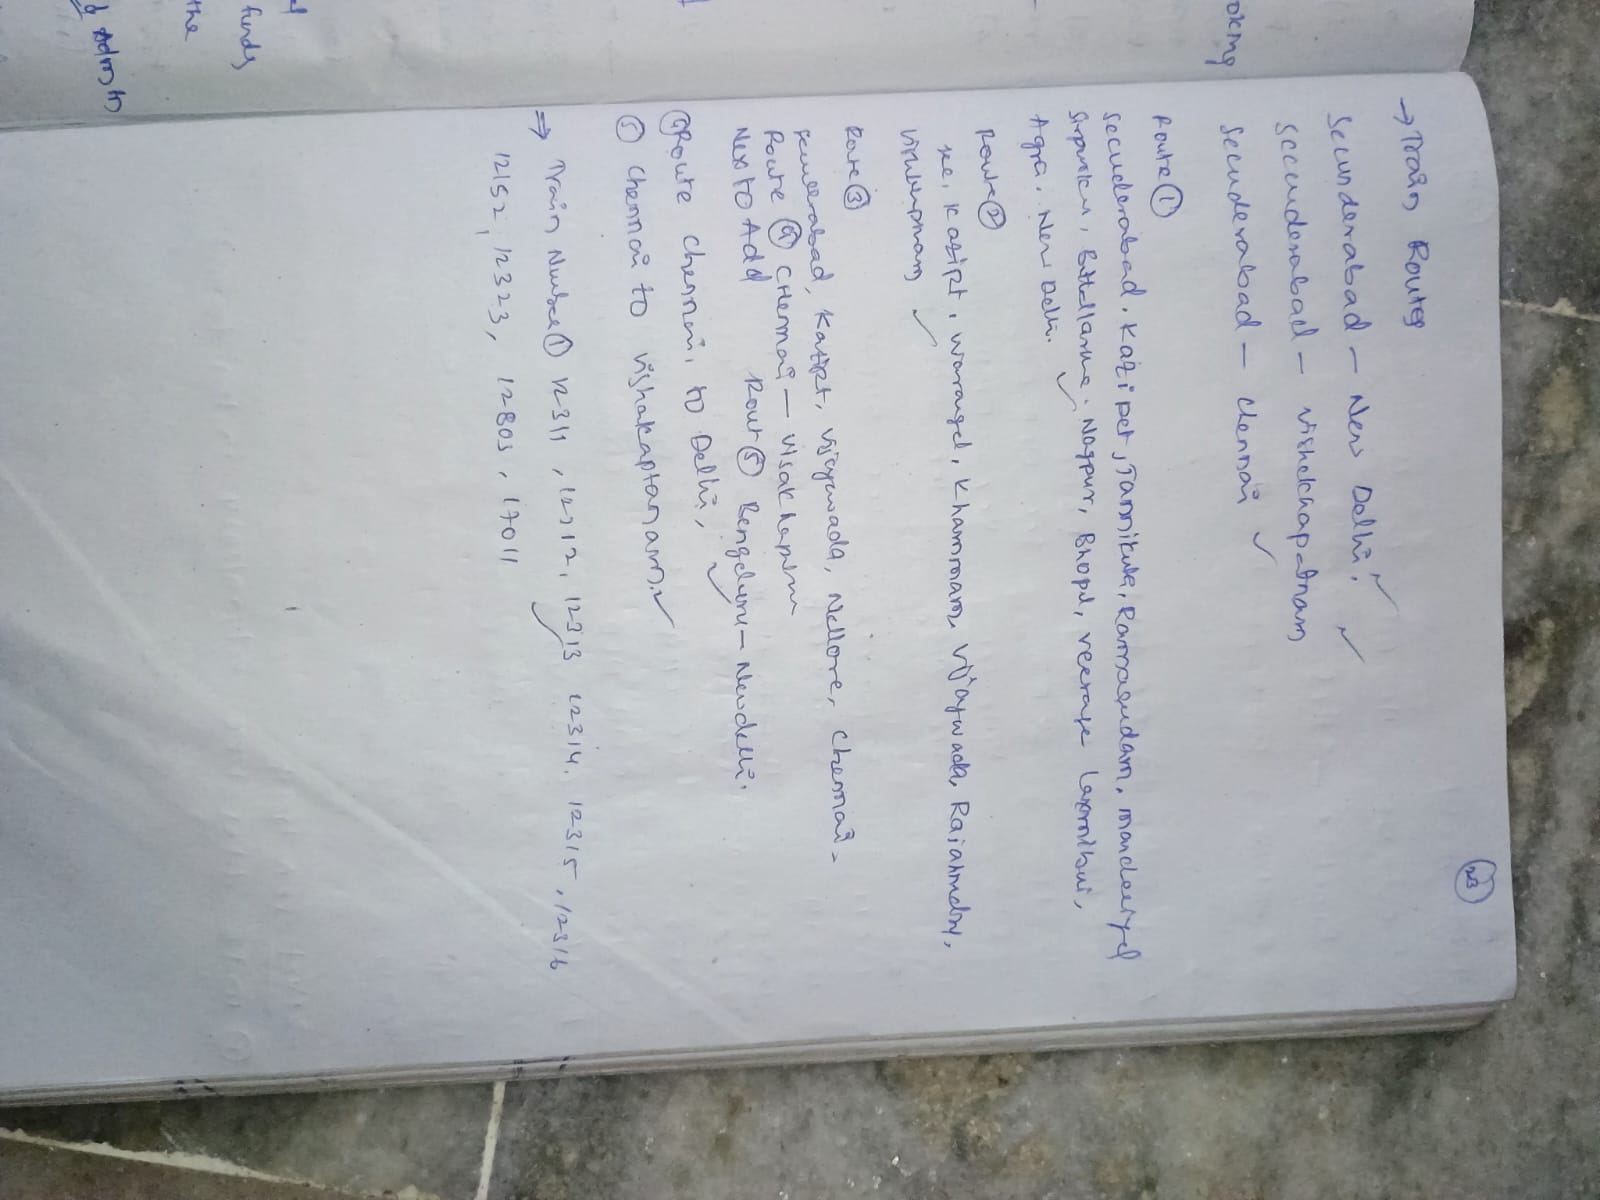 23
→ Train Routes
Secunderabad — New Delhi. ✓
Seccuderabad — Vishekhapatnam ✓
Secuderabad — Chennai ✓
Route ①
Secuderabad. Kazipet, Tannikula, Ramagudam, mancheriyel
Sirpurku, Nagpur, Bhopl, veerage laxmibui,
Agra. New Delhi. ✓
Route ②
sec, Kazipt, warangel, Khammam, Vijaywada, Rajahmdry,
✓
Route ③
Kazipt, Vijaywada, Nellore, Chennai.
Route ④ Chennai — Visakhapatnam
Next to Add Rout ⑤ Bengeluru — Newdelhi.
④ Route Chennai, to Delhi, ✓
⑤ Chennai to vishakaptanam. ✓
⇒ Train Number ① 12311, 12312, 12313 12314. 12315, 12316
12152, 12323, 12803, 17011 ✓
oking
funds
the
& Admin